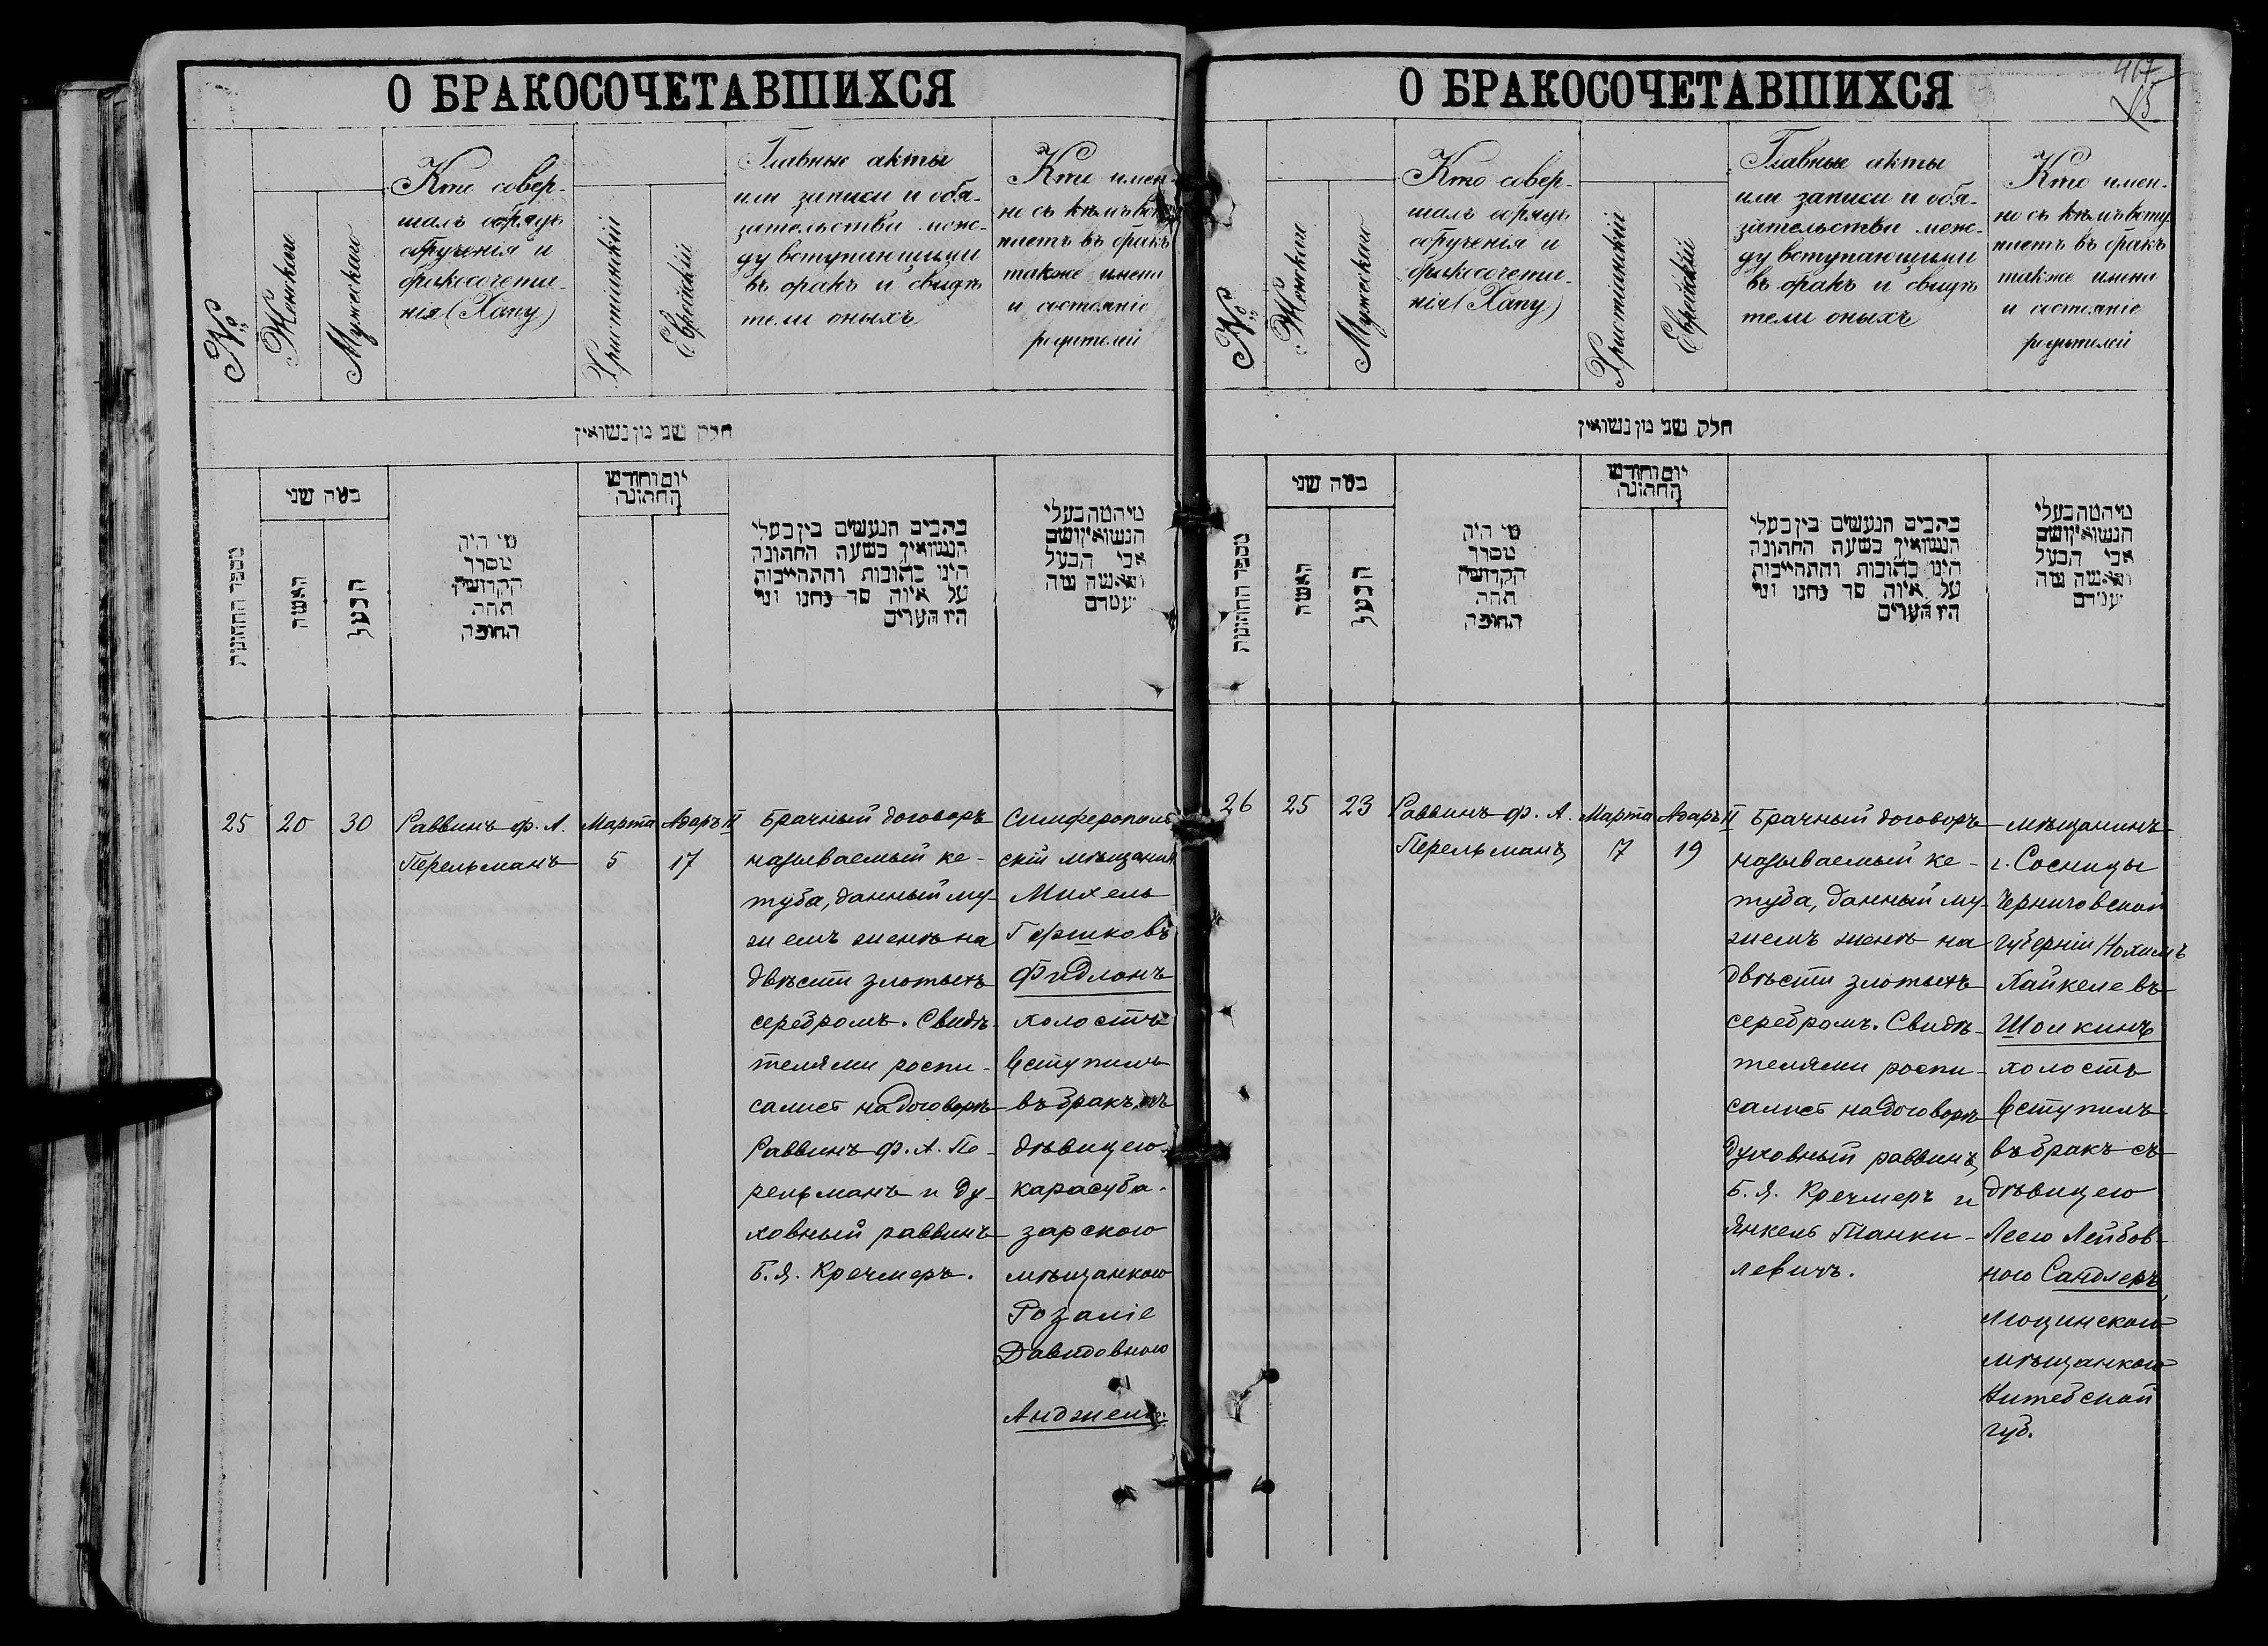 О БРАКОСОЧЕТАВШИХСЯ
№
Женскаго
Мужескаго
Кто совер-
шалъ обрядъ
обрученія и
бракосочета-
нія (Хапу)
Христіанскій
Еврейскій
Главные акты
или записи и обя-
зательства меж-
ду вступающими
въ бракъ и свидѣ
тели оныхъ
Кто имен-
но съ кѣмъ всту
паетъ въ бракъ
также имена
и состояніе
родителей
חלק שני מן נשואין
מספר החתונות
בטה שני
האשה
הבעל
מי היה
מסדר
הקדושין
תחת
החופה
יום וחודש
החתונה
כתבים הנעשים בין בעלי
הנשואין בשעה החתונה
היינו כתובות והתחייבות
על איזה סך נתנו ומי
היו העדים
מי המה בעלי
הנשואין ושם
אבי הבעל
והאשה מה
25
20
30
Раввинъ ф. А.
Перельманъ
Марта
5
Адаръ II
17
Брачный договоръ
называемый ке-
туба, данный му-
жемъ женѣ на
двѣсти злотыхъ
серебромъ. Свидѣ-
телями распи-
сались на договорѣ
Раввинъ ф. А. Пе-
рельманъ и Ду-
ховный раввинъ
Б. Я. Кречмеръ.
Симферополь
скій мѣщанинъ
Михель
Гершковъ
Фидлонъ
холостъ
вступилъ
въ бракъ съ
дѣвицею
карасуба-
зарскою
мѣщанкою
Розаліе
Давидовною
417
О БРАКОСОЧЕТАВШИХСЯ
№
Женскаго
Мужескаго
Кто совер-
шалъ обрядъ
обрученія и
бракосочета-
нія (Хапу)
Христіанскій
Еврейскій
Главные акты
или записи и обя-
зательства меж-
ду вступающими
въ бракъ и свидѣ
тели оныхъ
Кто имен-
но съ кѣмъ всту
паетъ въ бракъ
также имена
и состояніе
родителей
חלק שני מן נשואין
מספר החתונות
בטה שני
האשה
הבעל
מי היה
מסדר
הקדושין
תחת
החופה
יום וחודש
החתונה
כתבים הנעשים בין בעלי
הנשואין בשעה החתונה
היינו כתובות והתחייבות
על איזה סך נתנו ומי
היו העדים
מי המה בעלי
הנשואין ושם
אבי הבעל
והאשה מה
26
25
23
Раввинъ ф. А.
Перельманъ
Марта
17
Адаръ II
19
Брачный договоръ
называемый ке-
туба, данный му-
жемъ женѣ на
двѣсти злотыхъ
серебромъ. Свидѣ-
телями распи-
сались на договорѣ
Духовный раввинъ
Б. Я. Кречмеръ и
Янкель Танки-
левичъ.
мѣщанинъ
г. Сосницы
Черниговской
губерніи Нохимъ
Хайкелевъ
холостъ
вступилъ
въ бракъ съ
дѣвицею
Лею Лейбов-
ною Сандлеръ,
Люцинскою
мѣщанкою
Витебской
губ.